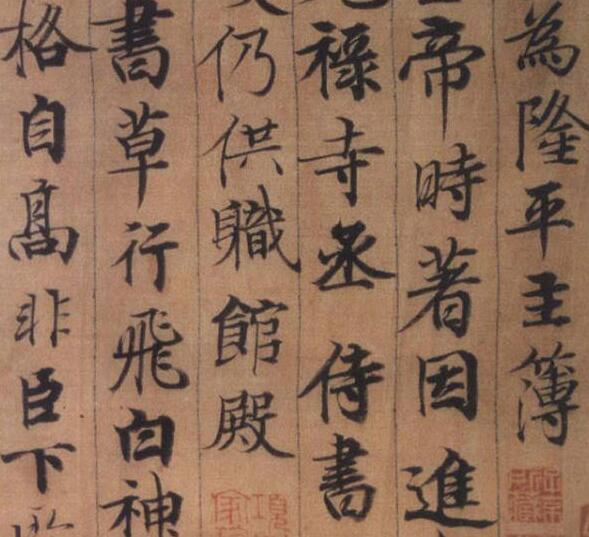 為隆平主簿
帝時著因進
祿寺丞侍書
仍供軄館殿
書草行飛白神
格自髙非臣下